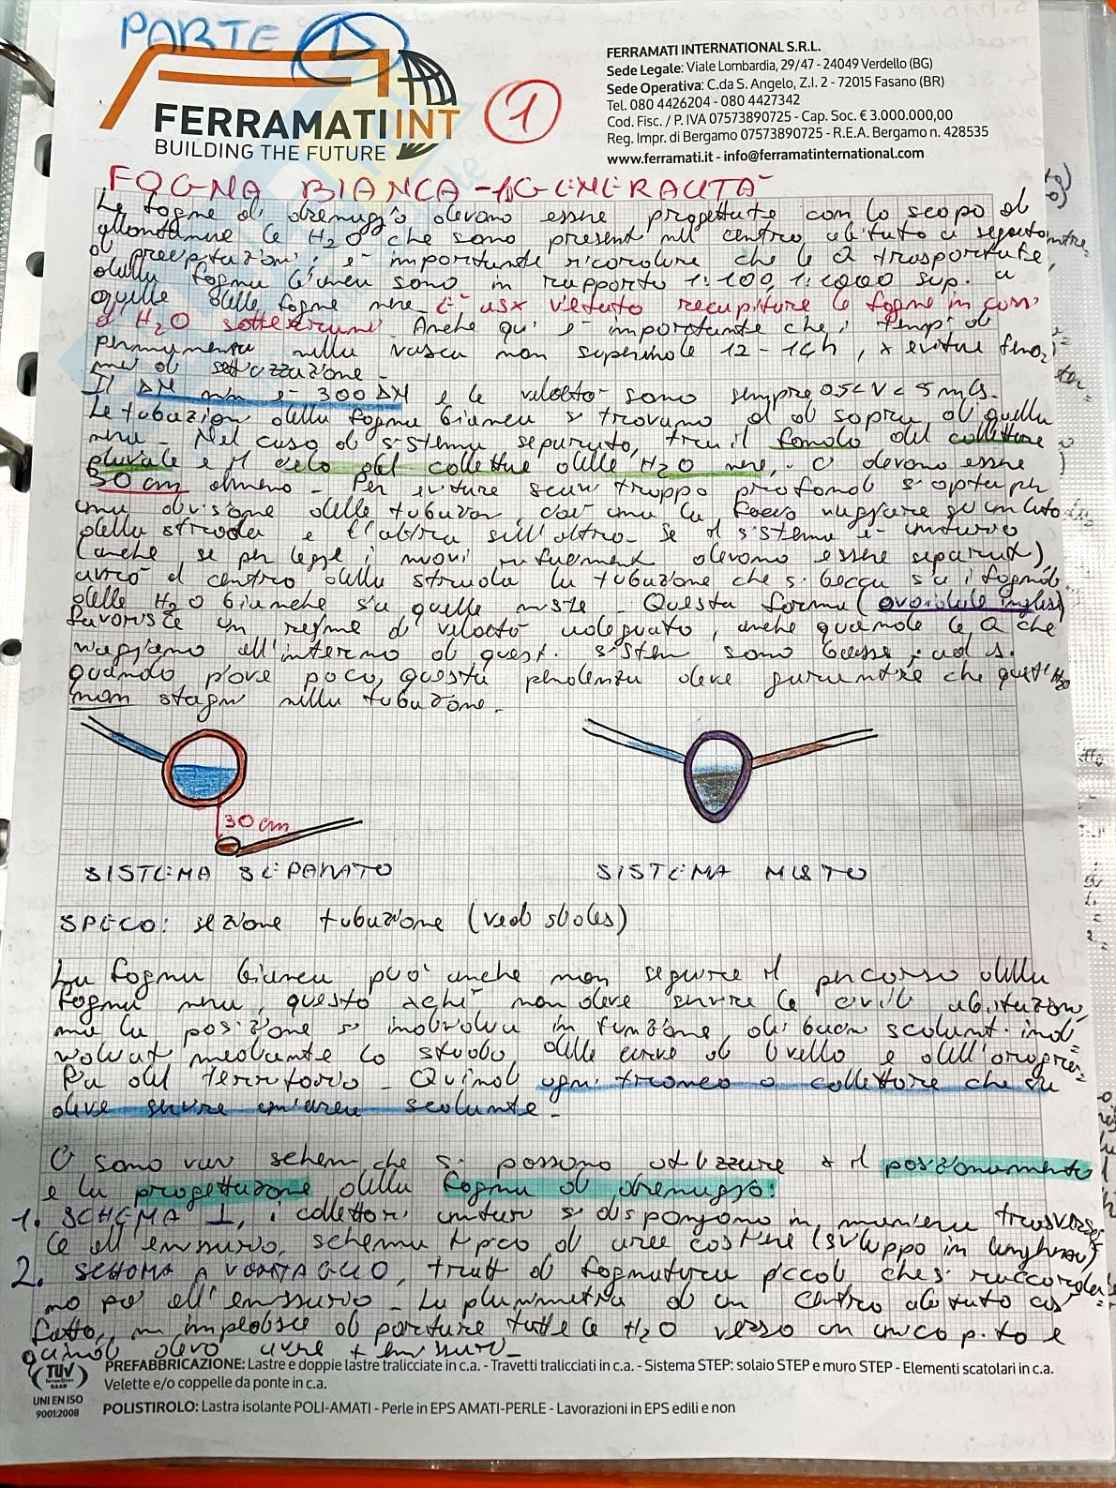 PARTE 1
FERRAMATI INT
BUILDING THE FUTURE
1
FERRAMATI INTERNATIONAL S.R.L.
Sede Legale: Viale Lombardia, 29/47 - 24049 Verdello (BG)
Sede Operativa: C.da S. Angelo, Z.I. 2 - 72015 Fasano (BR)
Tel. 080 4426204 - 080 4427342
Cod. Fisc. / P. IVA 07573890725 - Cap. Soc. € 3.000.000,00
Reg. Impr. di Bergamo 07573890725 - R.E.A. Bergamo n. 428535
www.ferramati.it - info@ferramatinternational.com
FOGNA BIANCA - GENERALITA'
Le fogne di drenaggio devono essere progettate con lo scopo di
allontanare le H2O che sono presenti nel centro abitato a seguito
di precipitazioni; e' importante ricordare che le Q trasportate
dalla fogna bianca sono in rapporto 1:100, 1:1000 sup. a
quelle delle fogne nere. E' vietato recapitare le fogne in corsi
d'H2O sotterranei. Anche qui e' importante che i tempi di
permanenza nella vasca non superino le 12-14h, x evitare feno=
meni di setticizzazione.
Il DN min e' 300 DN e le velocità sono sempre 0.5<V<5 m/s.
Le tubazioni della fogna bianca si trovano al di sopra di quella
nera. Nel caso di sistema separato, tra il fondo del collettore
pluviale e il cielo del collettore delle H2O nere, ci devono essere
30 cm almeno. Per evitare scavi troppo profondi si opta per
una divisione delle tubazioni, così una la faccio viaggiare su un lato
della strada e l'altra sull'altro. Se il sistema e' unitario
(anche se per legge i nuovi rifacimenti devono essere separati),
avrò al centro della strada la tubazione che si becca sia i fognoli
delle H2O bianche sia quelle miste. Questa forma (ovoidale inglese)
favorisce un regime di velocità adeguato, anche quando le Q che
viaggiano all'interno di questi sistemi sono basse; ad es.
quando piove poco, questa pendenza deve garantire che quest'H2O
non stagni nella tubazione.
30 cm
SISTEMA SEPARATO
SISTEMA MISTO
SPECO: sezione tubazione (vedi slides)
La fogna bianca può anche non seguire il percorso della
fogna nera, questo xchè non deve servire le civili abitazioni,
ma la posizione si individua in funzione dei bacini scolanti indi=
viduati mediante lo studio delle curve di livello e dell'orogra=
fia del territorio. Quindi ogni tronco o collettore che sia
deve servire un'area scolante.
Ci sono vari schemi che si possono utilizzare x il posizionamento
e la progettazione della fogna di drenaggio:
1. SCHEMA ⊥, i collettori unitari si dispongono in maniera trasversa=
le all'emissario, schema tipico di aree costiere (sviluppo in lunghezza)
2. SCHEMA A VENTAGLIO, tratti di fognatura piccoli che si raccorda=
no poi all'emissario. La planimetria di un centro abitato così
fatto, mi impedisce di portare tutte le H2O verso un unico p.to e
quindi devo avere + emissari.
TÜV
UNI EN ISO
9001:2008
PREFABBRICAZIONE: Lastre e doppie lastre tralicciate in c.a. - Travetti tralicciati in c.a. - Sistema STEP: solaio STEP e muro STEP - Elementi scatolari in c.a.
Velette e/o coppelle da ponte in c.a.
POLISTIROLO: Lastra isolante POLI-AMATI - Perle in EPS AMATI-PERLE - Lavorazioni in EPS edili e non